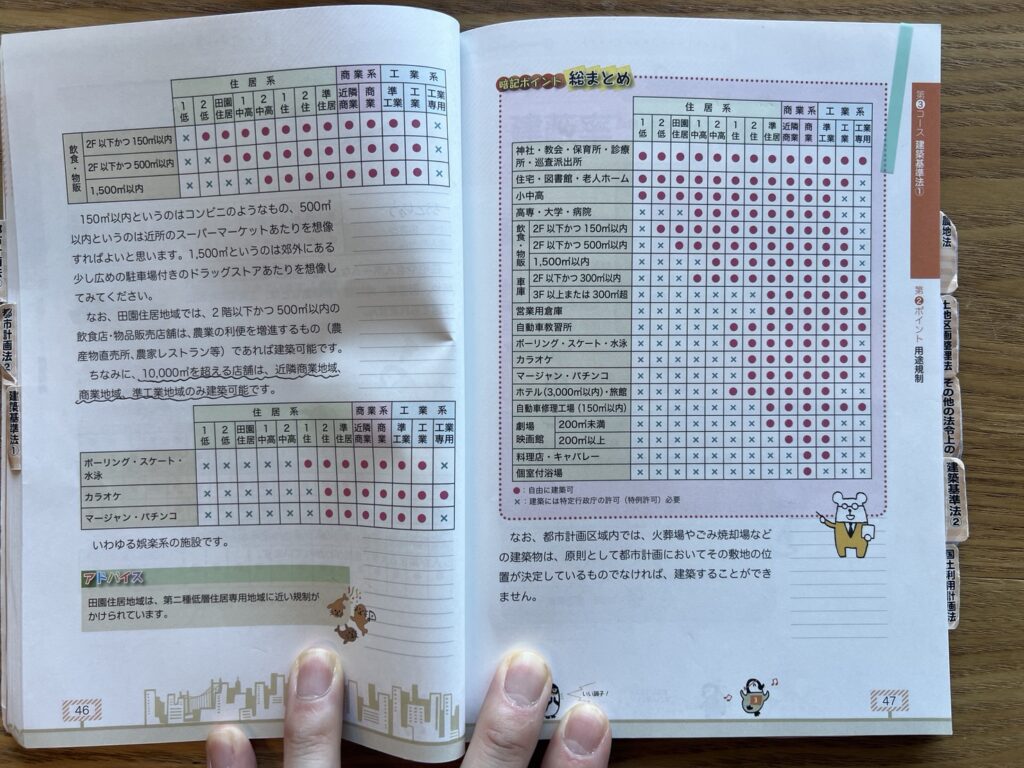 住居系 商業系 工業系
1低 2低 田園住居 1中高 2中高 1住 2住 準住居 近隣商業 商業 準工業 工業 工業専用
飲食・物販
2F以下かつ150㎡以内 × ● ● ● ● ● ● ● ● ● ● ● ×
2F以下かつ500㎡以内 × × ● ● ● ● ● ● ● ● ● ● ×
1,500㎡以内 × × × × ● ● ● ● ● ● ● ● ×
150㎡以内というのはコンビニのようなもの、500㎡
以内というのは近所のスーパーマーケットあたりを想像
すればよいと思います。1,500㎡というのは郊外にある
少し広めの駐車場付きのドラッグストアあたりを想像し
てみてください。
なお、田園住居地域では、2階以下かつ500㎡以内の
飲食店・物品販売店舗は、農業の利便を増進するもの（農
産物直売所、農家レストラン等）であれば建築可能です。
ちなみに、10,000㎡を超える店舗は、近隣商業地域、
商業地域、準工業地域のみ建築可能です。
住居系 商業系 工業系
1低 2低 田園住居 1中高 2中高 1住 2住 準住居 近隣商業 商業 準工業 工業 工業専用
ボーリング・スケート・
水泳 × × × × × ● ● ● ● ● ● ● ×
カラオケ × × × × × × ● ● ● ● ● ● ●
マージャン・パチンコ × × × × × × ● ● ● ● ● ● ×
いわゆる娯楽系の施設です。
アドバイス
田園住居地域は、第二種低層住居専用地域に近い規制が
かけられています。
46
都市計画法2
建築基準法①
暗記ポイント 総まとめ
住居系 商業系 工業系
1低 2低 田園住居 1中高 2中高 1住 2住 準住居 近隣商業 商業 準工業 工業 工業専用
神社・教会・保育所・診療
所・巡査派出所 ● ● ● ● ● ● ● ● ● ● ● ● ●
住宅・図書館・老人ホーム ● ● ● ● ● ● ● ● ● ● ● ● ×
小中高 ● ● ● ● ● ● ● ● ● ● ● × ×
高専・大学・病院 × × × ● ● ● ● ● ● ● ● × ×
飲食・物販
2F以下かつ150㎡以内 × ● ● ● ● ● ● ● ● ● ● ● ×
2F以下かつ500㎡以内 × × ● ● ● ● ● ● ● ● ● ● ×
1,500㎡以内 × × × × ● ● ● ● ● ● ● ● ×
車庫
2F以下かつ300㎡以内 × × × ● ● ● ● ● ● ● ● ● ●
3F以上または300㎡超 × × × × × × × ● ● ● ● ● ●
営業用倉庫 × × × × × × × ● ● ● ● ● ●
自動車教習所 × × × × × ● ● ● ● ● ● ● ●
ボーリング・スケート・水泳 × × × × × ● ● ● ● ● ● ● ×
カラオケ × × × × × × ● ● ● ● ● ● ●
マージャン・パチンコ × × × × × × ● ● ● ● ● ● ×
ホテル(3,000㎡以内)・旅館 × × × × × ● ● ● ● ● ● × ×
自動車修理工場(150㎡以内) × × × × × × × ● ● ● ● ● ●
劇場 映画館
200㎡未満 × × × × × × × ● ● ● ● × ×
200㎡以上 × × × × × × × × ● ● ● × ×
料理店・キャバレー × × × × × × × × × ● ● × ×
個室付浴場 × × × × × × × × × ● × × ×
●：自由に建築可
×：建築には特定行政庁の許可（特例許可）必要
なお、都市計画区域内では、火葬場やごみ焼却場など
の建築物は、原則として都市計画においてその敷地の位
置が決定しているものでなければ、建築することができ
ません。
いい調子！
47
第3コース 建築基準法①
第2ポイント 用途規制
土地区画整理法
その他の法令上の
建築基準法②
国土利用計画法